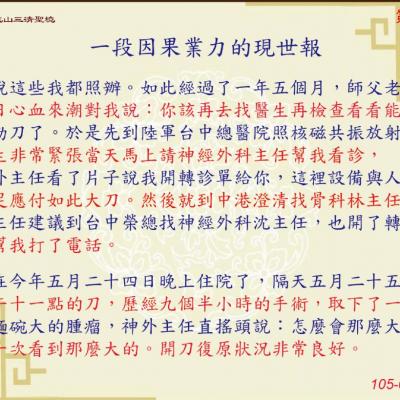 山三清聖境
一段因果業力的現世報
說這些我都照辦。如此經過了一年五個月，師父老
日心血來潮對我說：你該再去找醫生再檢查看看能
動刀了。於是先到陸軍台中總醫院照核磁共振放射
生非常緊張當天馬上請神經外科主任幫我看診，
外主任看了片子說我開轉診單給你，這裡設備與人
足應付如此大刀。然後就到中港澄清找骨科林主任
主任建議到台中榮總找神經外科沈主任，也開了轉
幫我打了電話。
在今年五月二十四日晚上住院了，隔天五月二十五
二十一點的刀，歷經九個半小時的手術，取下了一
麵碗大的腫瘤，神外主任直搖頭說：怎麼會那麼大
一次看到那麼大的。開刀復原狀況非常良好。
105-